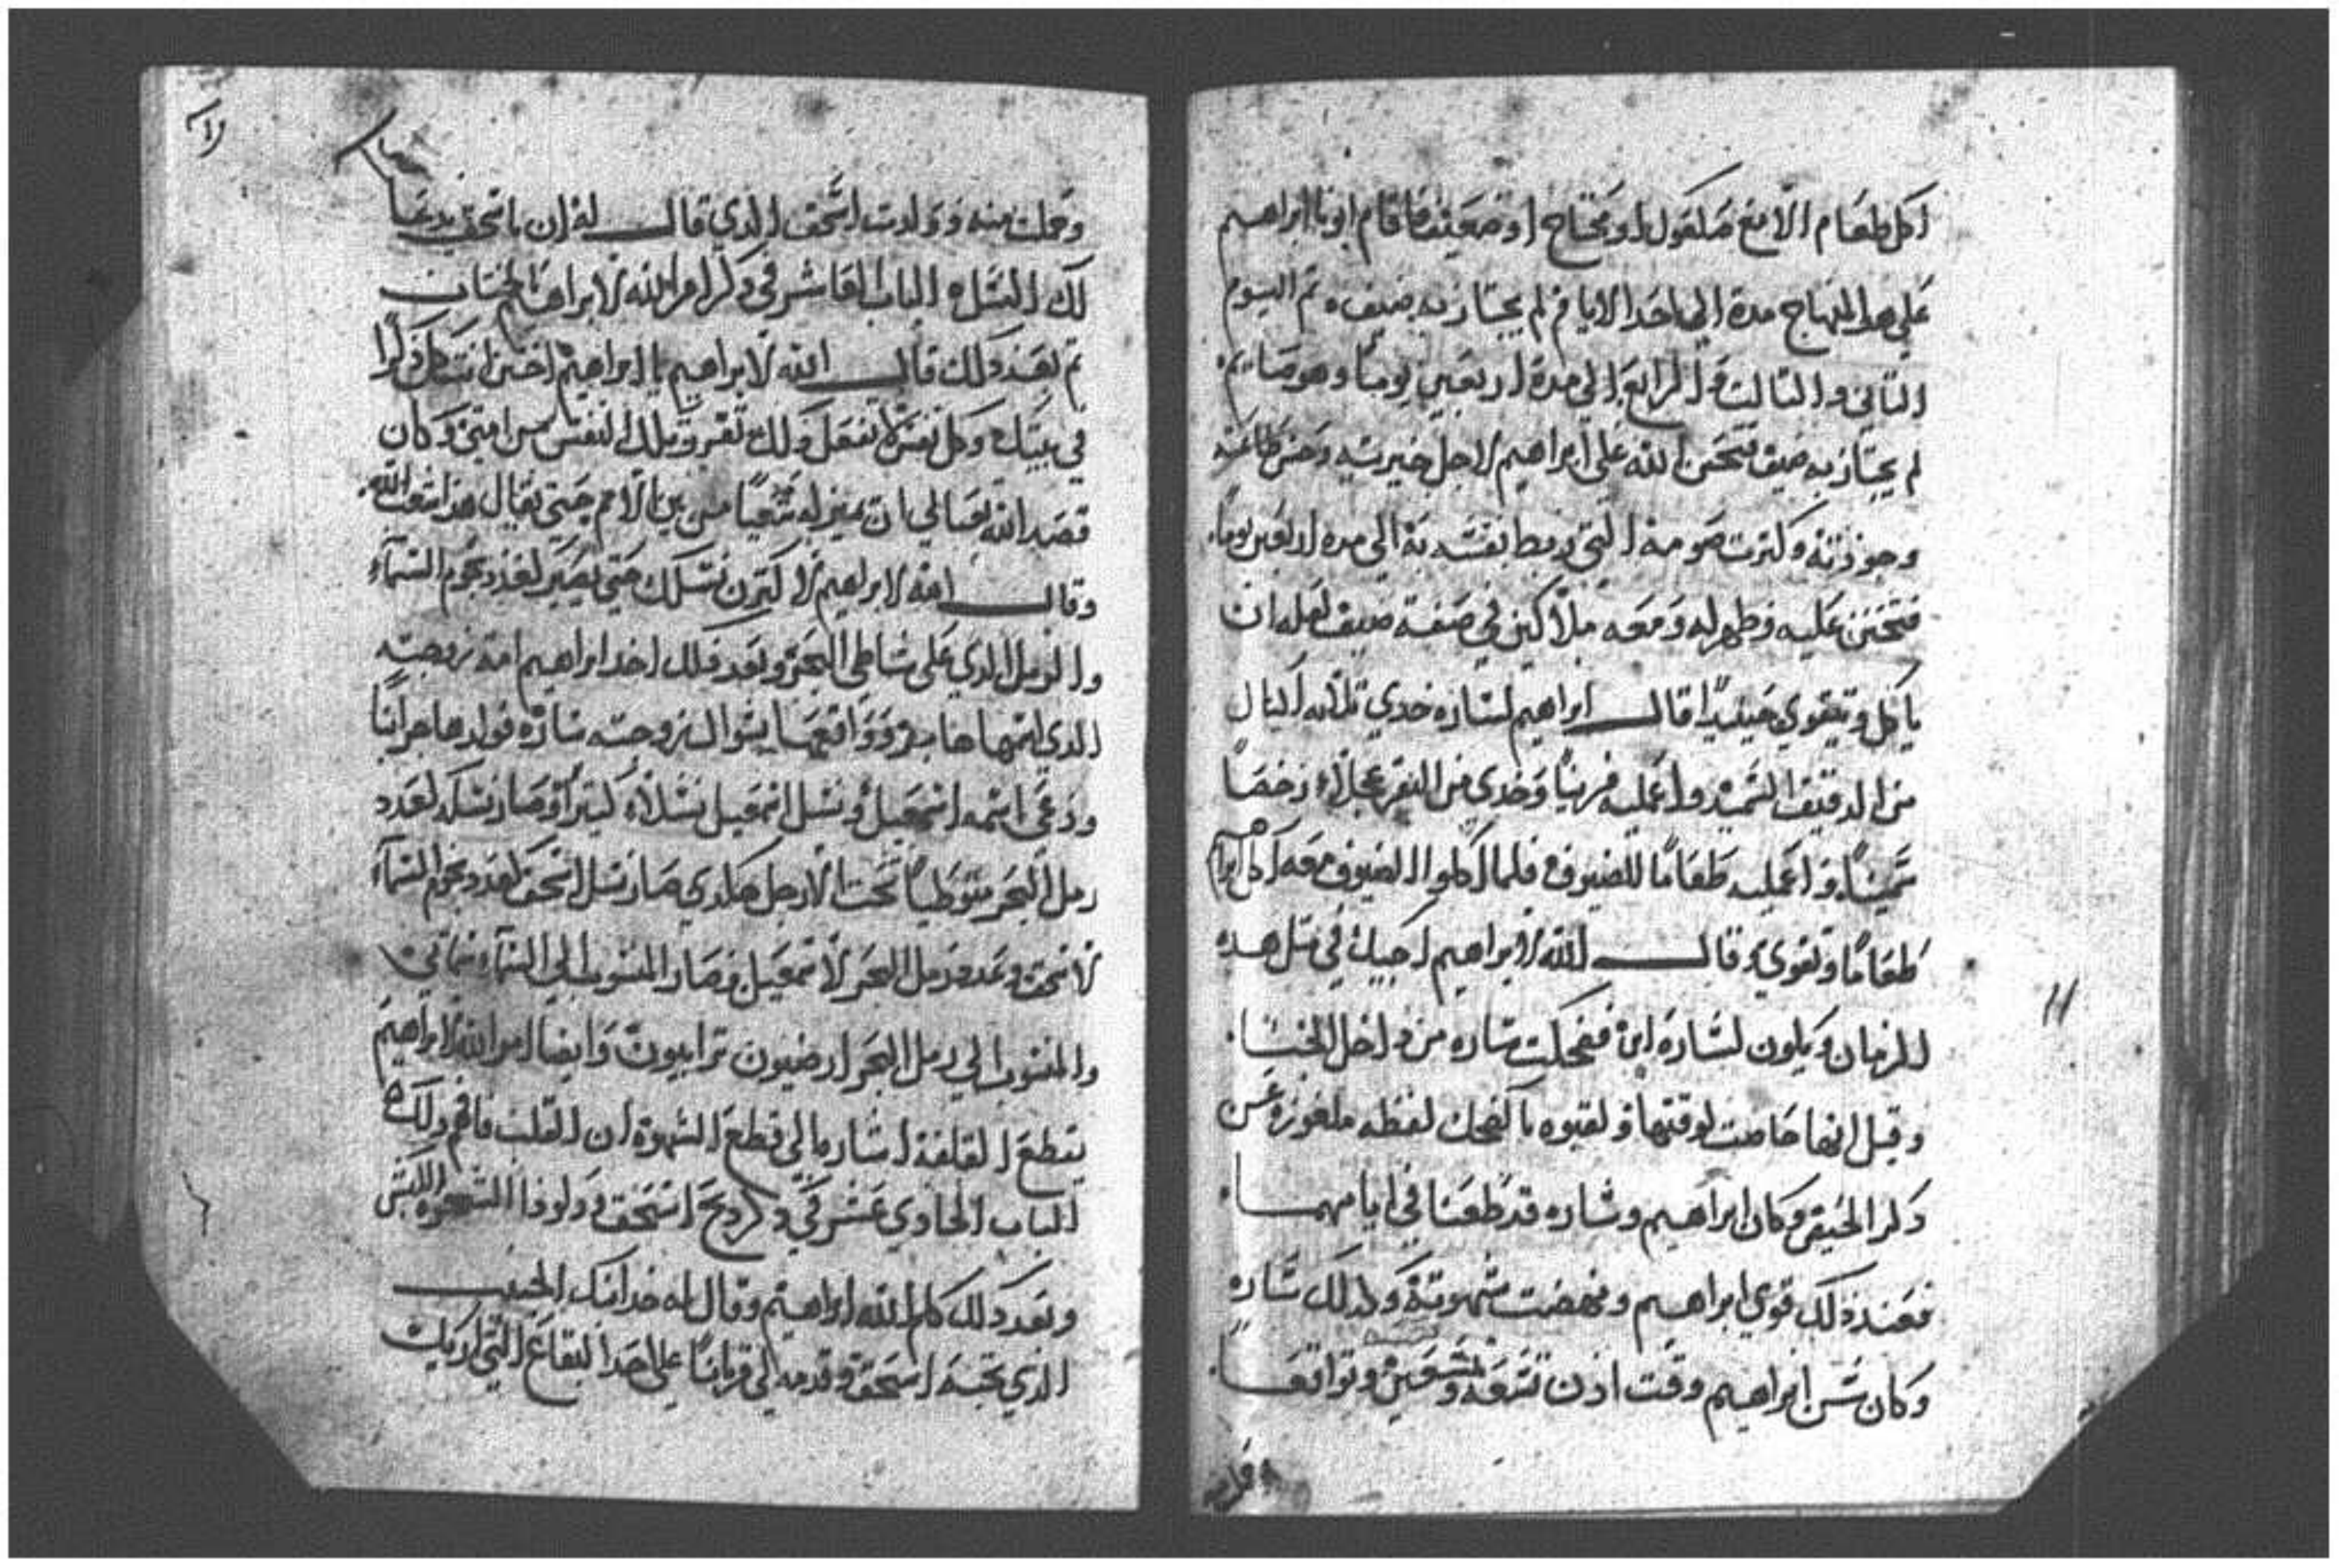 اكل طعام الا مع صعلوك او محتاج او ضعيف فاقام ابونا ابراهيم
على هدا المنهاج مدة الي احد الايام لم يجتاز به ضيف ثم اليوم
التاني والتالت والرابع الي مدة اربعين يوماً وهو صايم
لم يجتاز به ضيف فتحنن الله على ابراهيم لاجل خيريته وحسن طاعته
وجودته وكترت صومه التي ربط نفسه به الي مدة اربعين يوماً
فتحنن عليه وظهر له ومعه ملاكين في صفة ضيف لعله ان
ياكل ويتقوي حينيدا قال ابراهيم لساره خدي تلاته اكيال
من الدقيق السميد واعمليه فرنياً وخدي من البقر عجلاً رخصاً
سميناً واعمليه طعاما للضيوف فلما اكلوا الضيوف معه اكل ابراهيم
طعاماً وتقوي وقال الله لابراهيم اجيك في متل هده
الزمان ويكون لساره ابن فضحكت ساره من داخل الخبا
وقيل انها حاضت لوقتها ولقبوه بالضحك لفظه ملغوزه عن
دكر الحيض وكان ابراهيم وساره قد طعنا في ايامهما
فعند ذلك قوي ابراهيم ونهضت شهوته وكدلك ساره
وكان سن ابراهيم وقت ادن تسعه وتسعين وتواقعا
وحملت
11
وحملت منه وولدت اسحق الدي قال له ان باسحق يدعا
لك النسل الباب العاشر في دكر امر الله لابراهيم بالختان
تم بعد دلك قال الله لابراهيم يا ابراهيم اختن انت وكل دكرا
في بيتك وكل نفس لا تفعل دلك تفرز تلك النفس من امتي وكان
قصد الله تعالي ان يميز له شعباً من بين الامم حتي يقال هدا شعب الله
وقال الله لابراهيم لاكترن نسلك حتي يصير لعدد نجوم السمآء
والرمل الدي على شاطي البحر وبعد دلك اخد ابراهيم امة زوجته
الدي اسمها هاجر وواقعها بسوال زوجته ساره فولد هاجر ابناً
ودعي اسمه اسمعيل ونسل اسمعيل نسلاً كتيراً وصار نسله لعدد
رمل البحر متوطياً تحت الارجل هكدي صار نسل اسحق لعدد نجوم السمآء
لاسحق وعدد رمل البحر لاسمعيل فصار المنسوب الي السمآء سماتي
والمنسوب الي رمل البحر ارضيون ترابيون وايضا امر الله لابراهيم
بقطع القلفة اشاره الي قطع الشهوة من القلب فافهم دلك
الباب الحادي عشر في دكر دبح اسحق
وبعد دلك كلم الله ابراهيم وقال له خد ابنك الحبيب
الدي تحبه اسحق وقدمه لي قرباناً على احد البقاع التي اريك